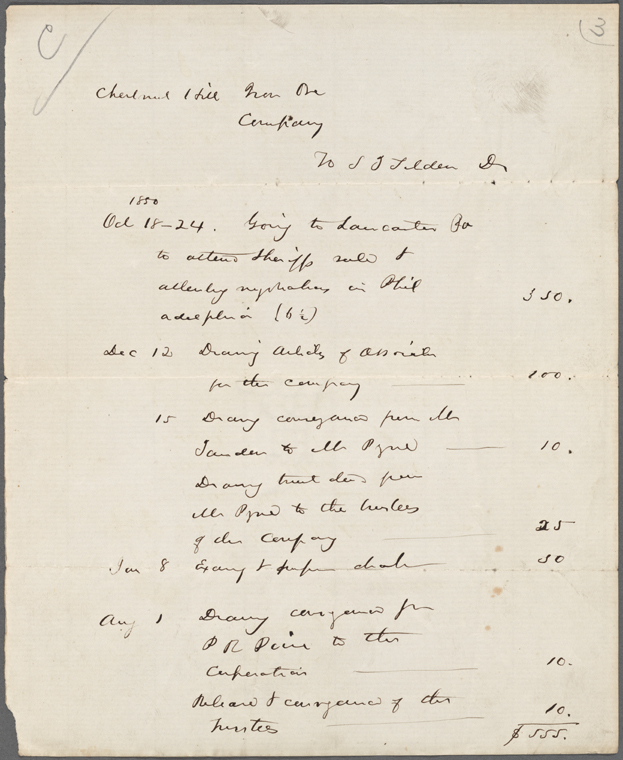 C
3
Chestnut Hill Iron Ore
Company
To S J Tilden Dr
1850
Oct 18-24. Going to Lancaster Pa
to attend Sheriff sale &
attending negotiations in Phil
adelphia (6½) 350.
Dec 12 Drawing Articles of Associatn
for the company 100.
15 Drawing conveyance from Mr
to Mr Pyne 10.
Drawing trust deed from
Mr Pyne to the trustees
of the Company 25
Jan 8 & 50
Aug 1 Drawing conveyance for
P R Pyne to the
Corporation 10.
Release & conveyance of the
trustees 10.
$555.